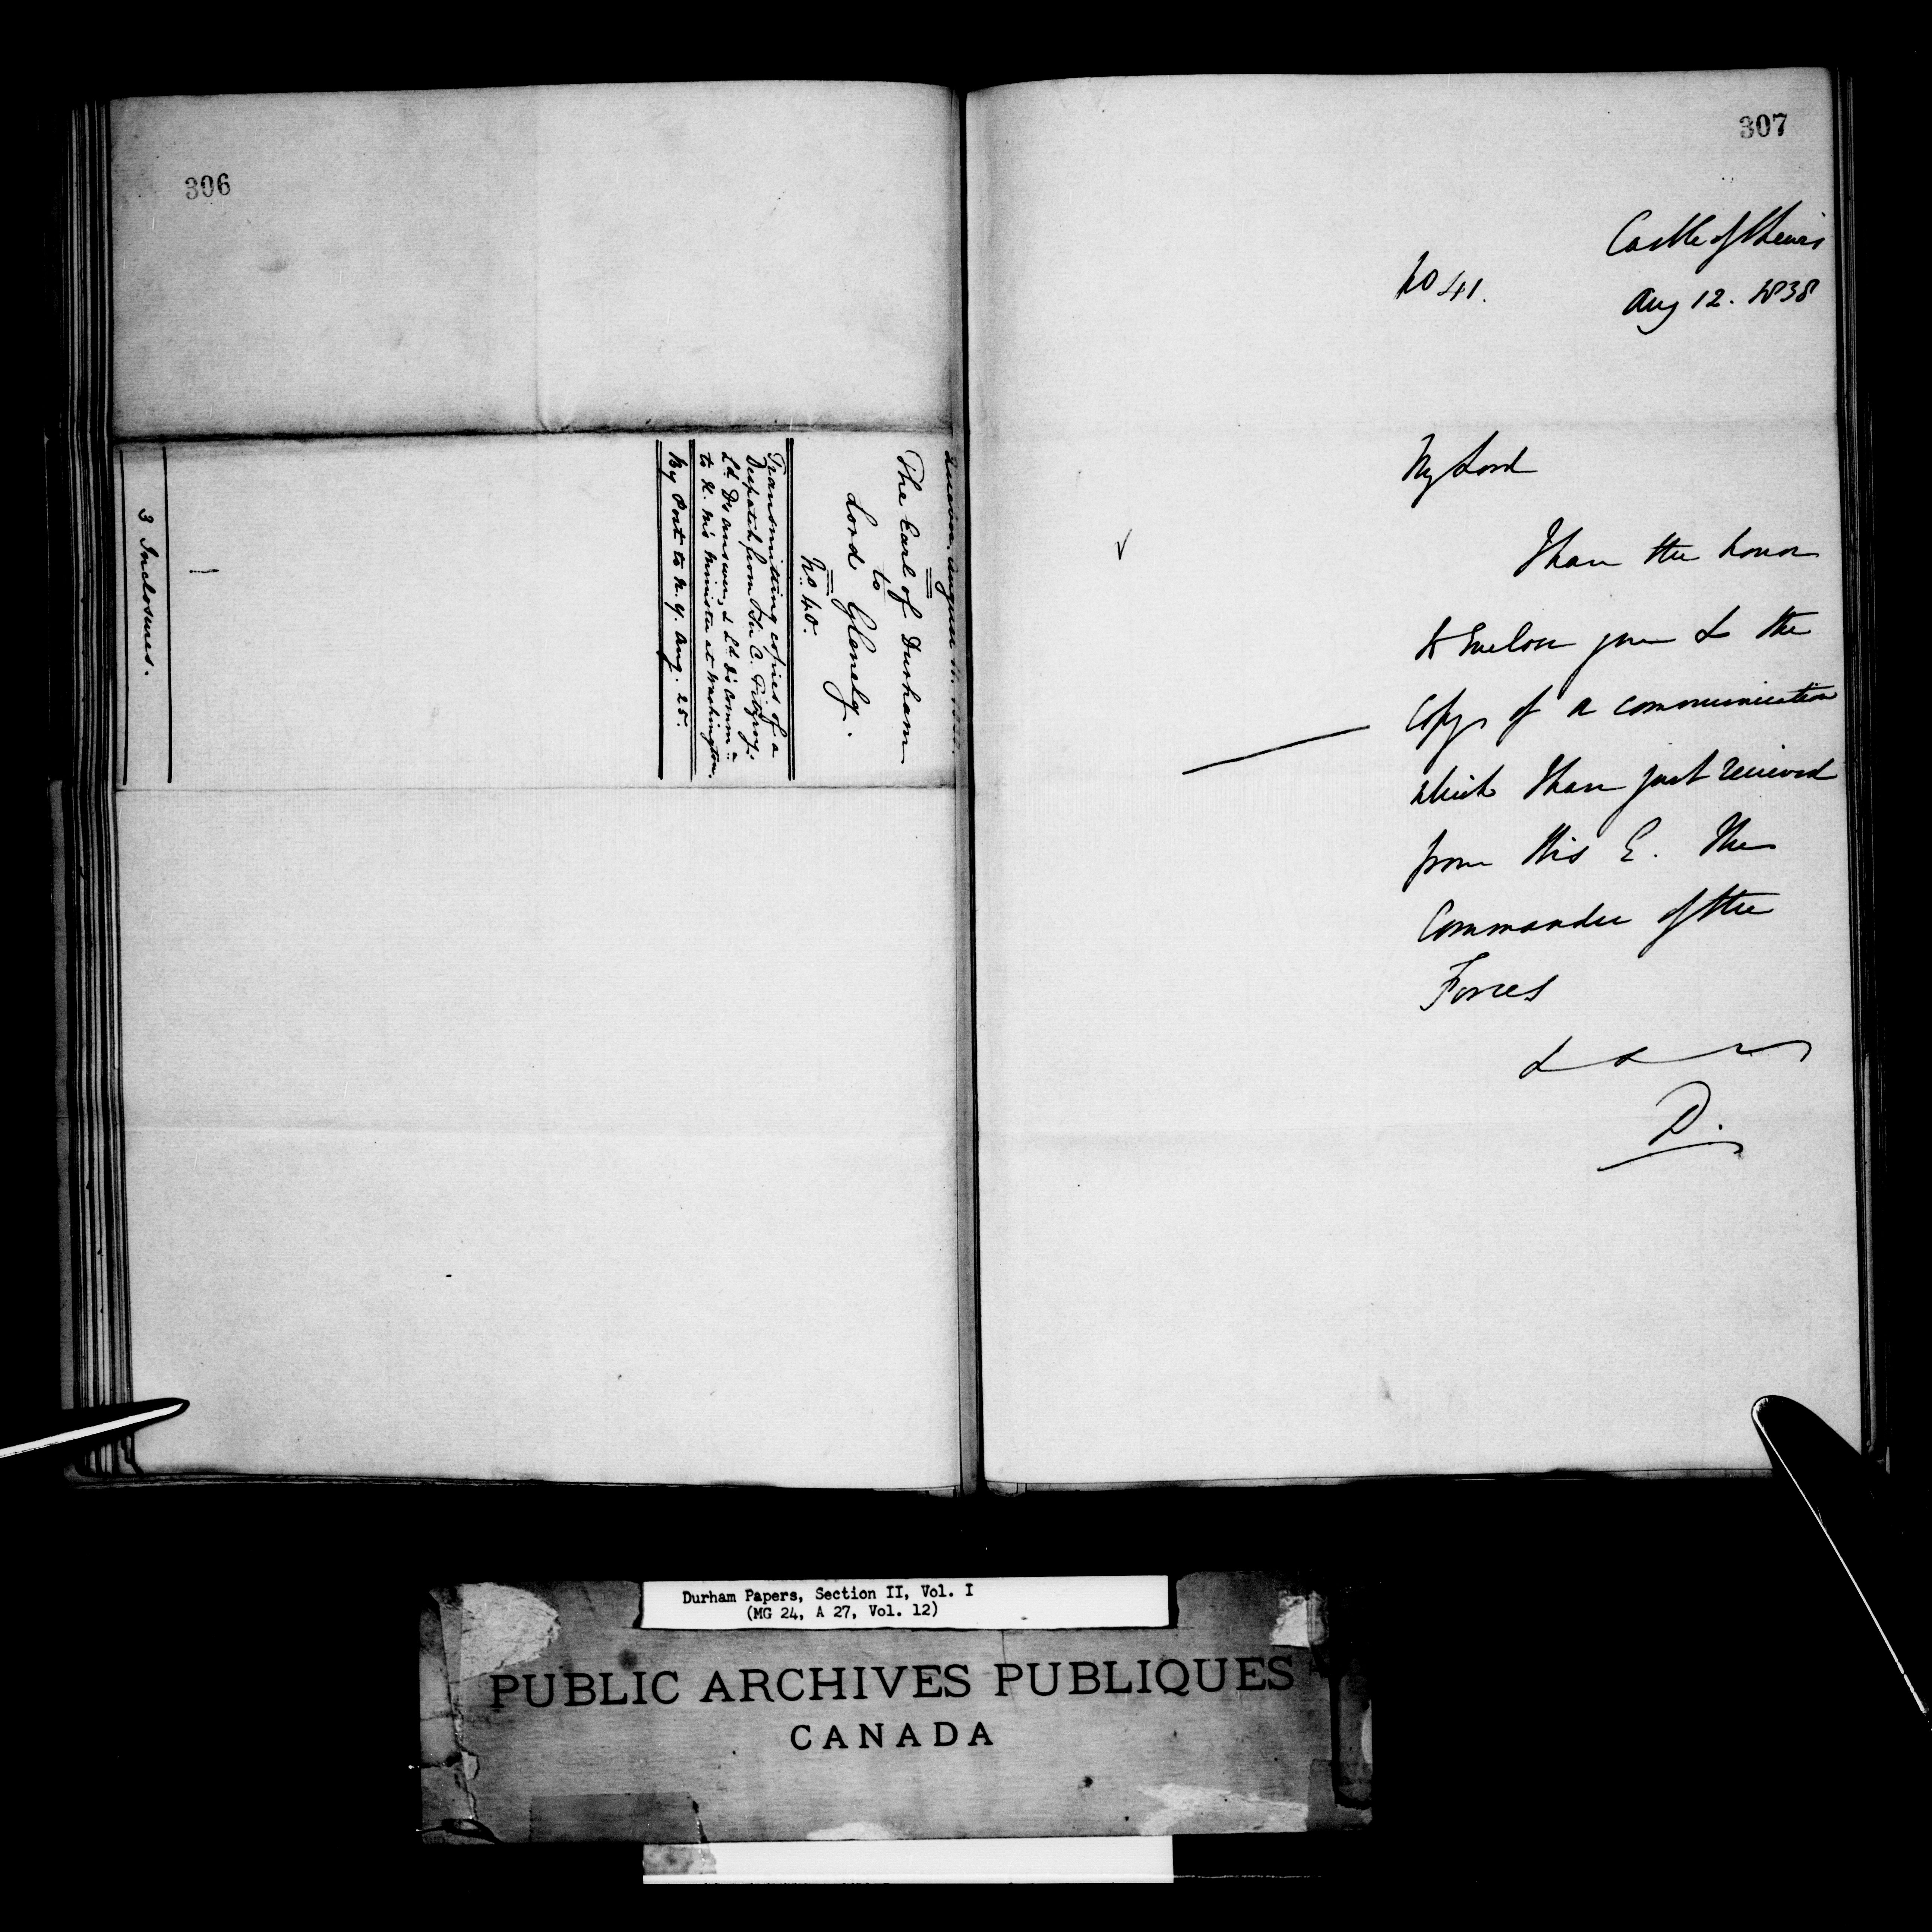 306
Quebec, August
The Earl of Durham
to
Lord Glenelg.
No. 40.
Transmitting copies of a
Despatch from Sir C. Fitzroy.
Ld. D's answer, & Ld. D's Commn.
to H. M's Minister at Washington.
By Post to N. Y. Aug. 25.
3 Inclosures.
307
Castle of St Lewis
No 41.
Aug 12. 1838
My Lord
I have the honor
to Enclose you the
Copy of a communication
which I have just received
from His E. the
Commander of the
Forces
D.
Durham Papers, Section II, Vol. I
(MG 24, A 27, Vol. 12)
PUBLIC ARCHIVES PUBLIQUES
CANADA